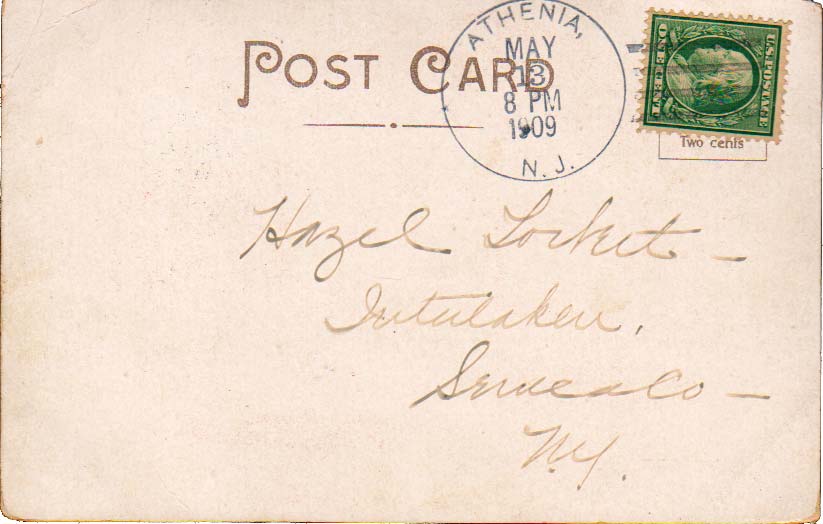 POST CARD
ATHENIA,
MAY
13
8 PM
1909
N. J.
U.S. POSTAGE
ONE CENT
Two cents
Hazel Lockett –
Interlaken,
Seneca Co –
N.Y.